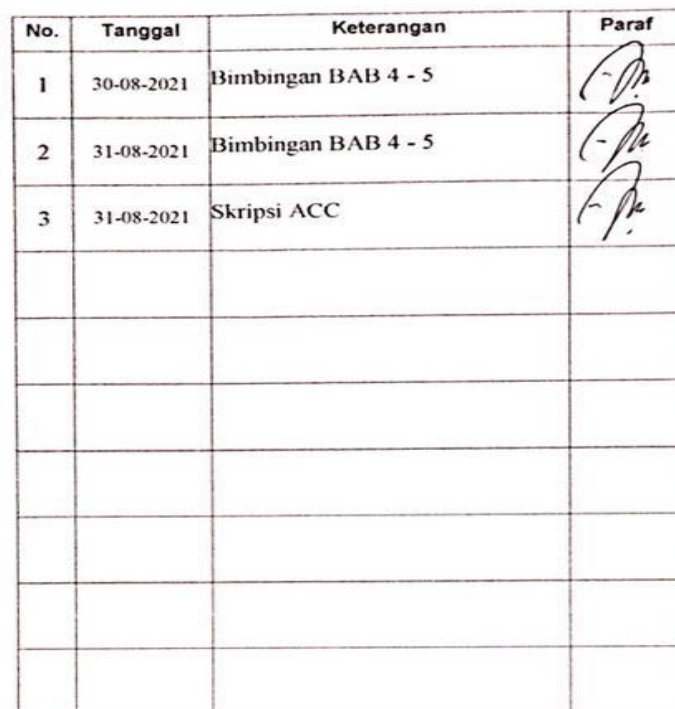 No. Tanggal Keterangan Paraf
1 30-08-2021 Bimbingan BAB 4 - 5
2 31-08-2021 Bimbingan BAB 4 - 5
3 31-08-2021 Skripsi ACC